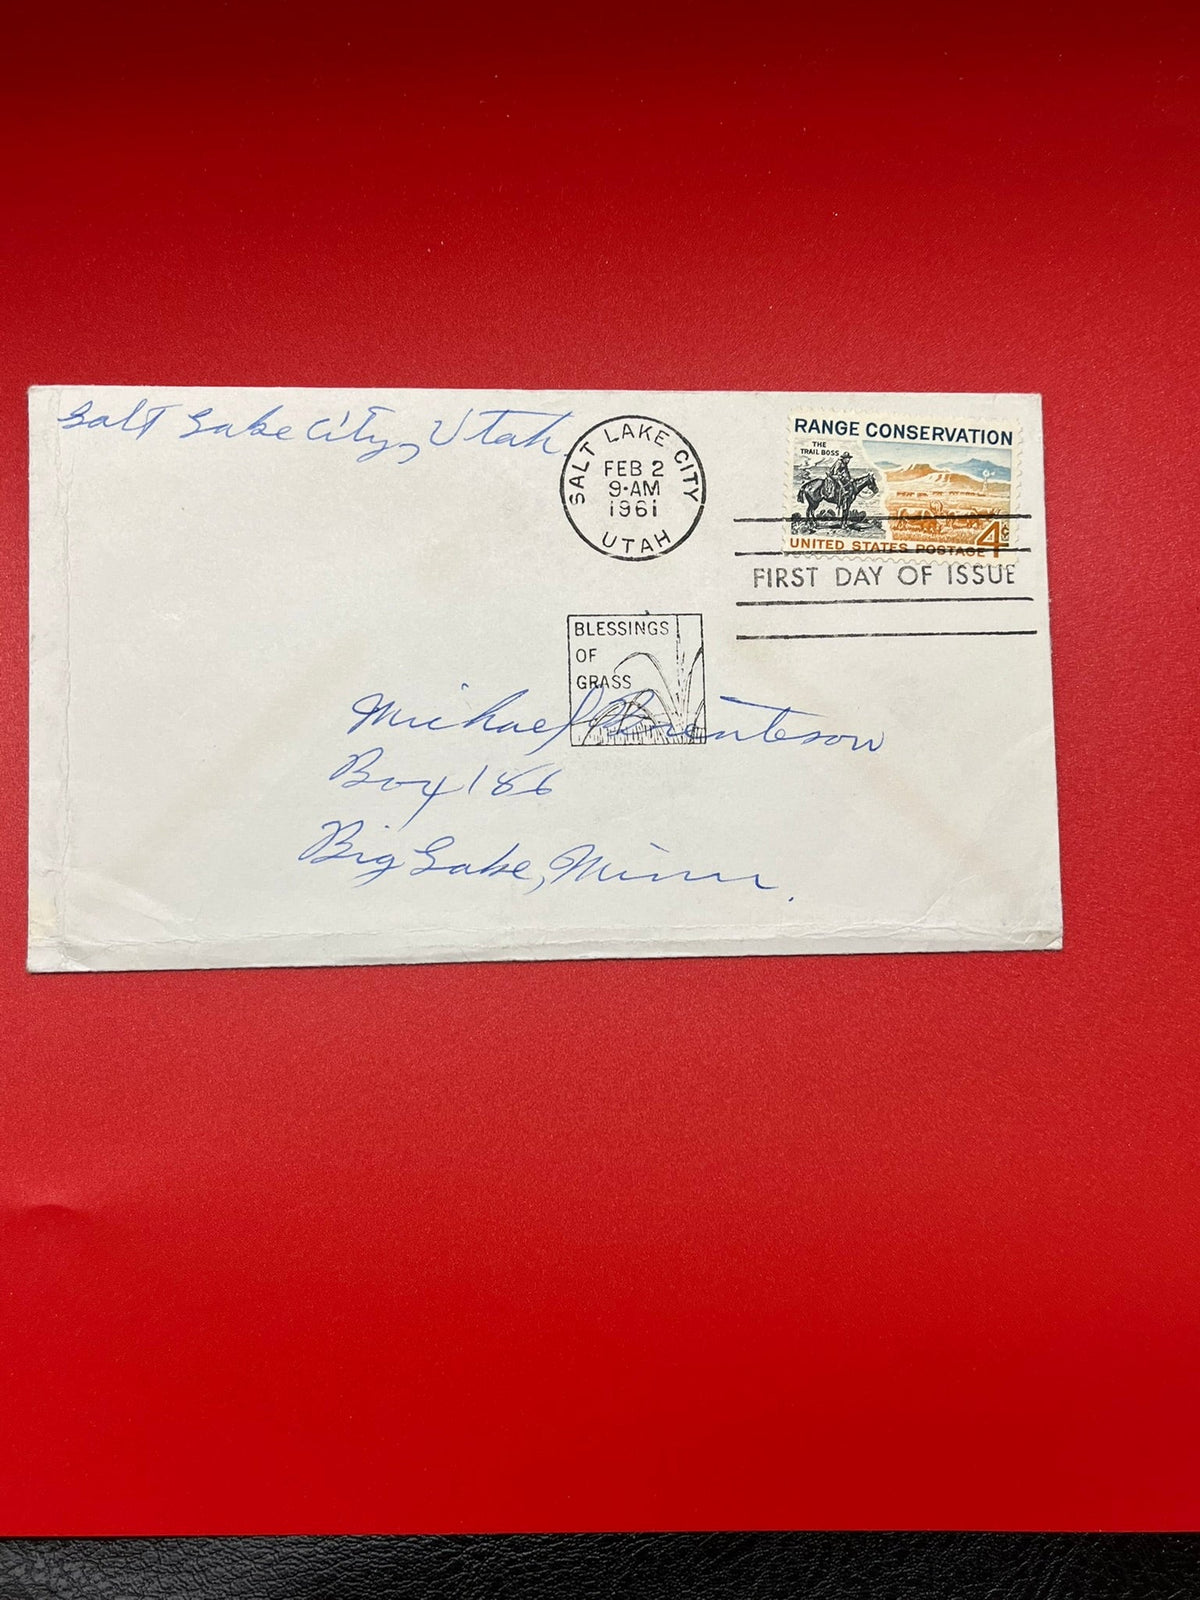 Salt Lake City, Utah
SALT LAKE CITY
FEB 2
9-AM
1961
UTAH
RANGE CONSERVATION
THE
TRAIL BOSS
4c
UNITED STATES POSTAGE
FIRST DAY OF ISSUE
BLESSINGS
OF
GRASS
Michael
Box 186
Big Lake, Minn.